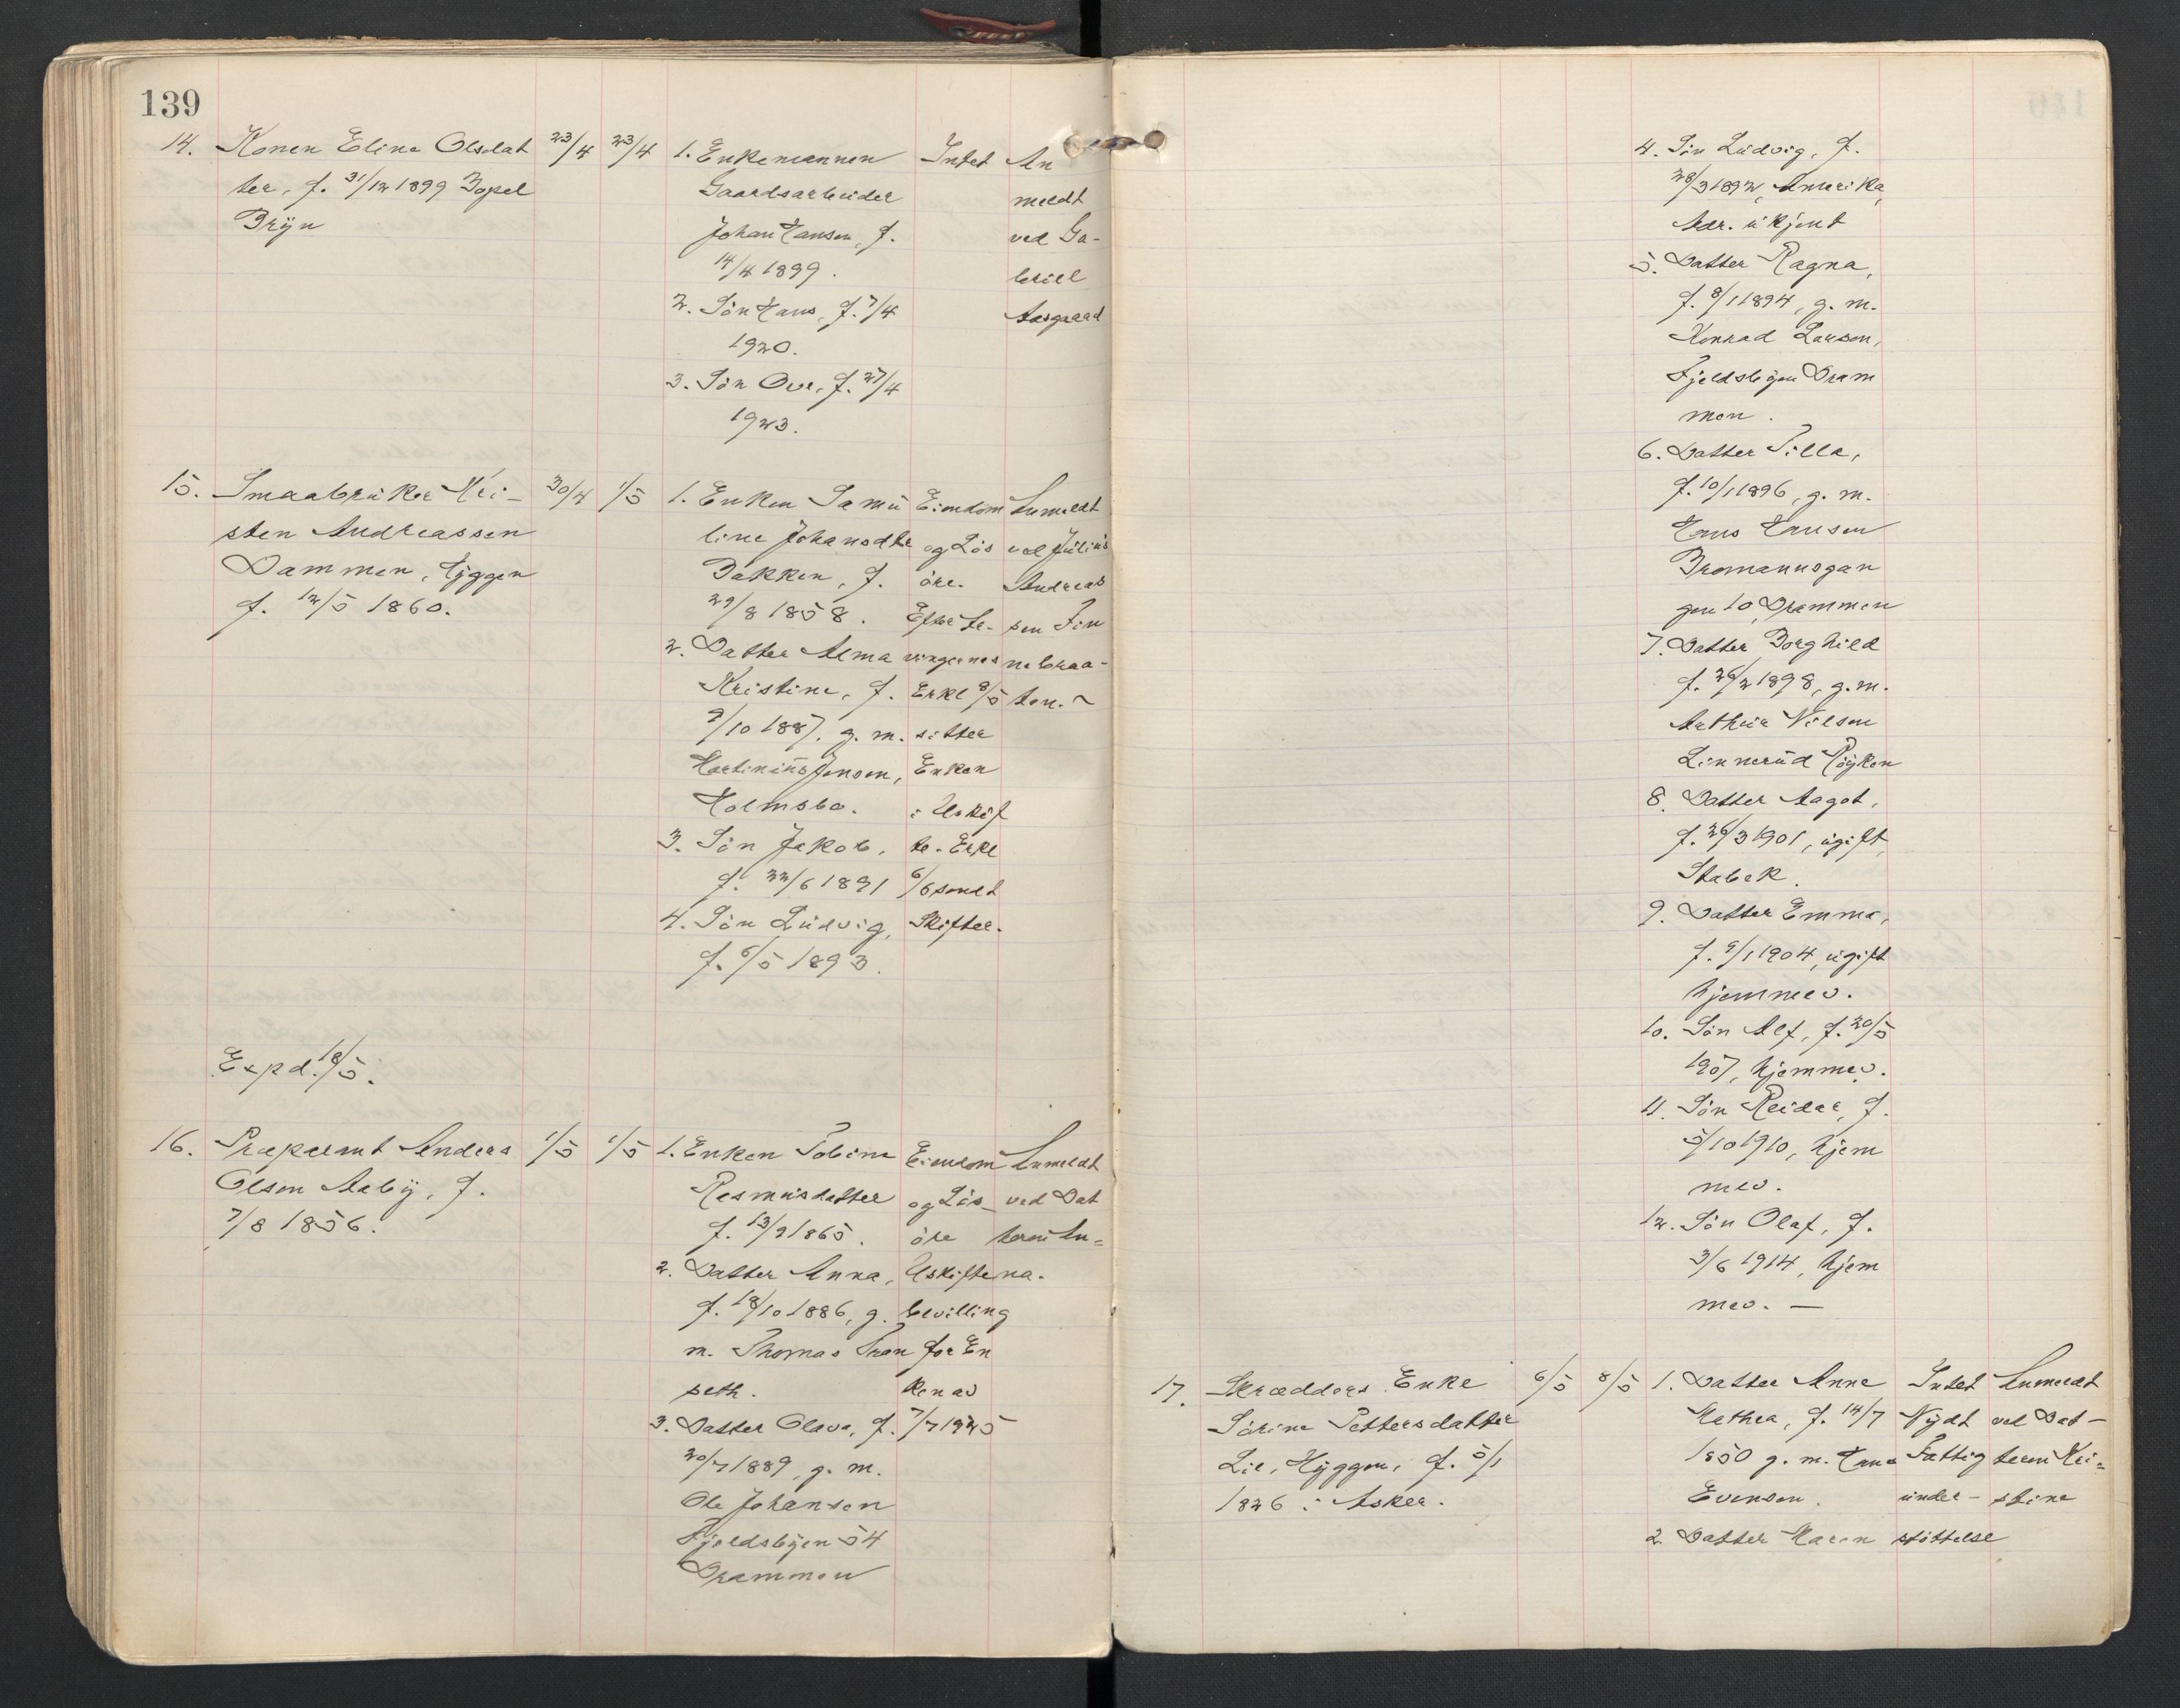 139
14. Konen Elina Olsdat
ter, f. 31/12 1899 Bopel
Bryn
23/4 23/4
1. Enkemannen
Gaardsarbeider
Johan Hansen, f.
14/4 1899.
2. Sön Hans, f. 7/4
1920.
3. Sön Ove, f. 27/4
1923.
Intet
An
meldt
ved Ga-
briel
Aasgaard
15. Smaabruker Kri-
sten Andreassen
Dammen, Hyggen
f. 12/5 1860.
Expd. 18/5.
30/4 1/5
1. Enken Samu
line Johansdtr
Bakken, f.
29/8 1858.
2. Datter Alma
Kristine, f.
9/10 1887, g. m.
Martinius Jensen,
Holmsbo.
3. Sön Jakob,
f. 22/6 1891
4. Sön Ludvig,
f. 6/5 1893.
Eiendom
og Lös
öre.
Efter Ar-
vingernes
Erkl 8/5
sitter
Enken
i Uskif
te. Erkl
6/6 sendt
Skifter.
Anmeldt
ved Julius
Andreas
sen Fin
nebraa-
ten. ~
16. Præparant Anders
Olsen Aaby, f.
7/8 1856.
1/5 1/5
1. Enken Tobine
Rasmusdatter
f. 13/9 1865.
2. Datter Anna,
f. 18/10 1886, g.
m. Thomas Tran
seth.
3. Datter Olava, f.
20/7 1889, g. m.
Ole Johansen
Fjeldsbyen 54
Drammen
Eiendom
og Lös-
öre
Uskifte
bevilling
for En
ken av
7/7 1925
Anmeldt
ved Dat
teren An-
na.
4. Sön Ludvig, f.
28/3 1892, Amerika,
Adr. ukjent
5. Datter Ragna,
f. 8/1 1894, g. m.
Konrad Larsen,
Fjeldsbyen Dram
men.
6. Datter Tilla,
f. 10/1 1896, g. m.
Hans Hansen
Bromannsgan
gen 10, Drammen
7. Datter Borghild
f. 26/2 1898, g. m.
Arthur Nilsen
Linnerud Röyken
8. Datter Aagot,
f. 26/3 1901, ugift,
Stabek.
9. Datter Emma,
f. 9/1 1904, ugift
hjemmev.
10. Sön Alf, f. 20/5
1907, hjemmev.
11. Sön Reidar, f.
5/10 1910, hjem
mev.
12. Sön Olaf, f.
3/6 1914, hjem
mev. —
17. Skrædders Enke
Sörine Pettersdatter
Lie, Hyggen, f. 5/1
1826 i Asker.
6/5 8/5
1. Datter Anne
Mathea, f. 14/7
1850 g. m. Hans
Evensen.
2. Datter Maren
Intet
Nydt
Fattig
under-
støttelse
Anmeldt
ved Dat-
teren Kri-
stine